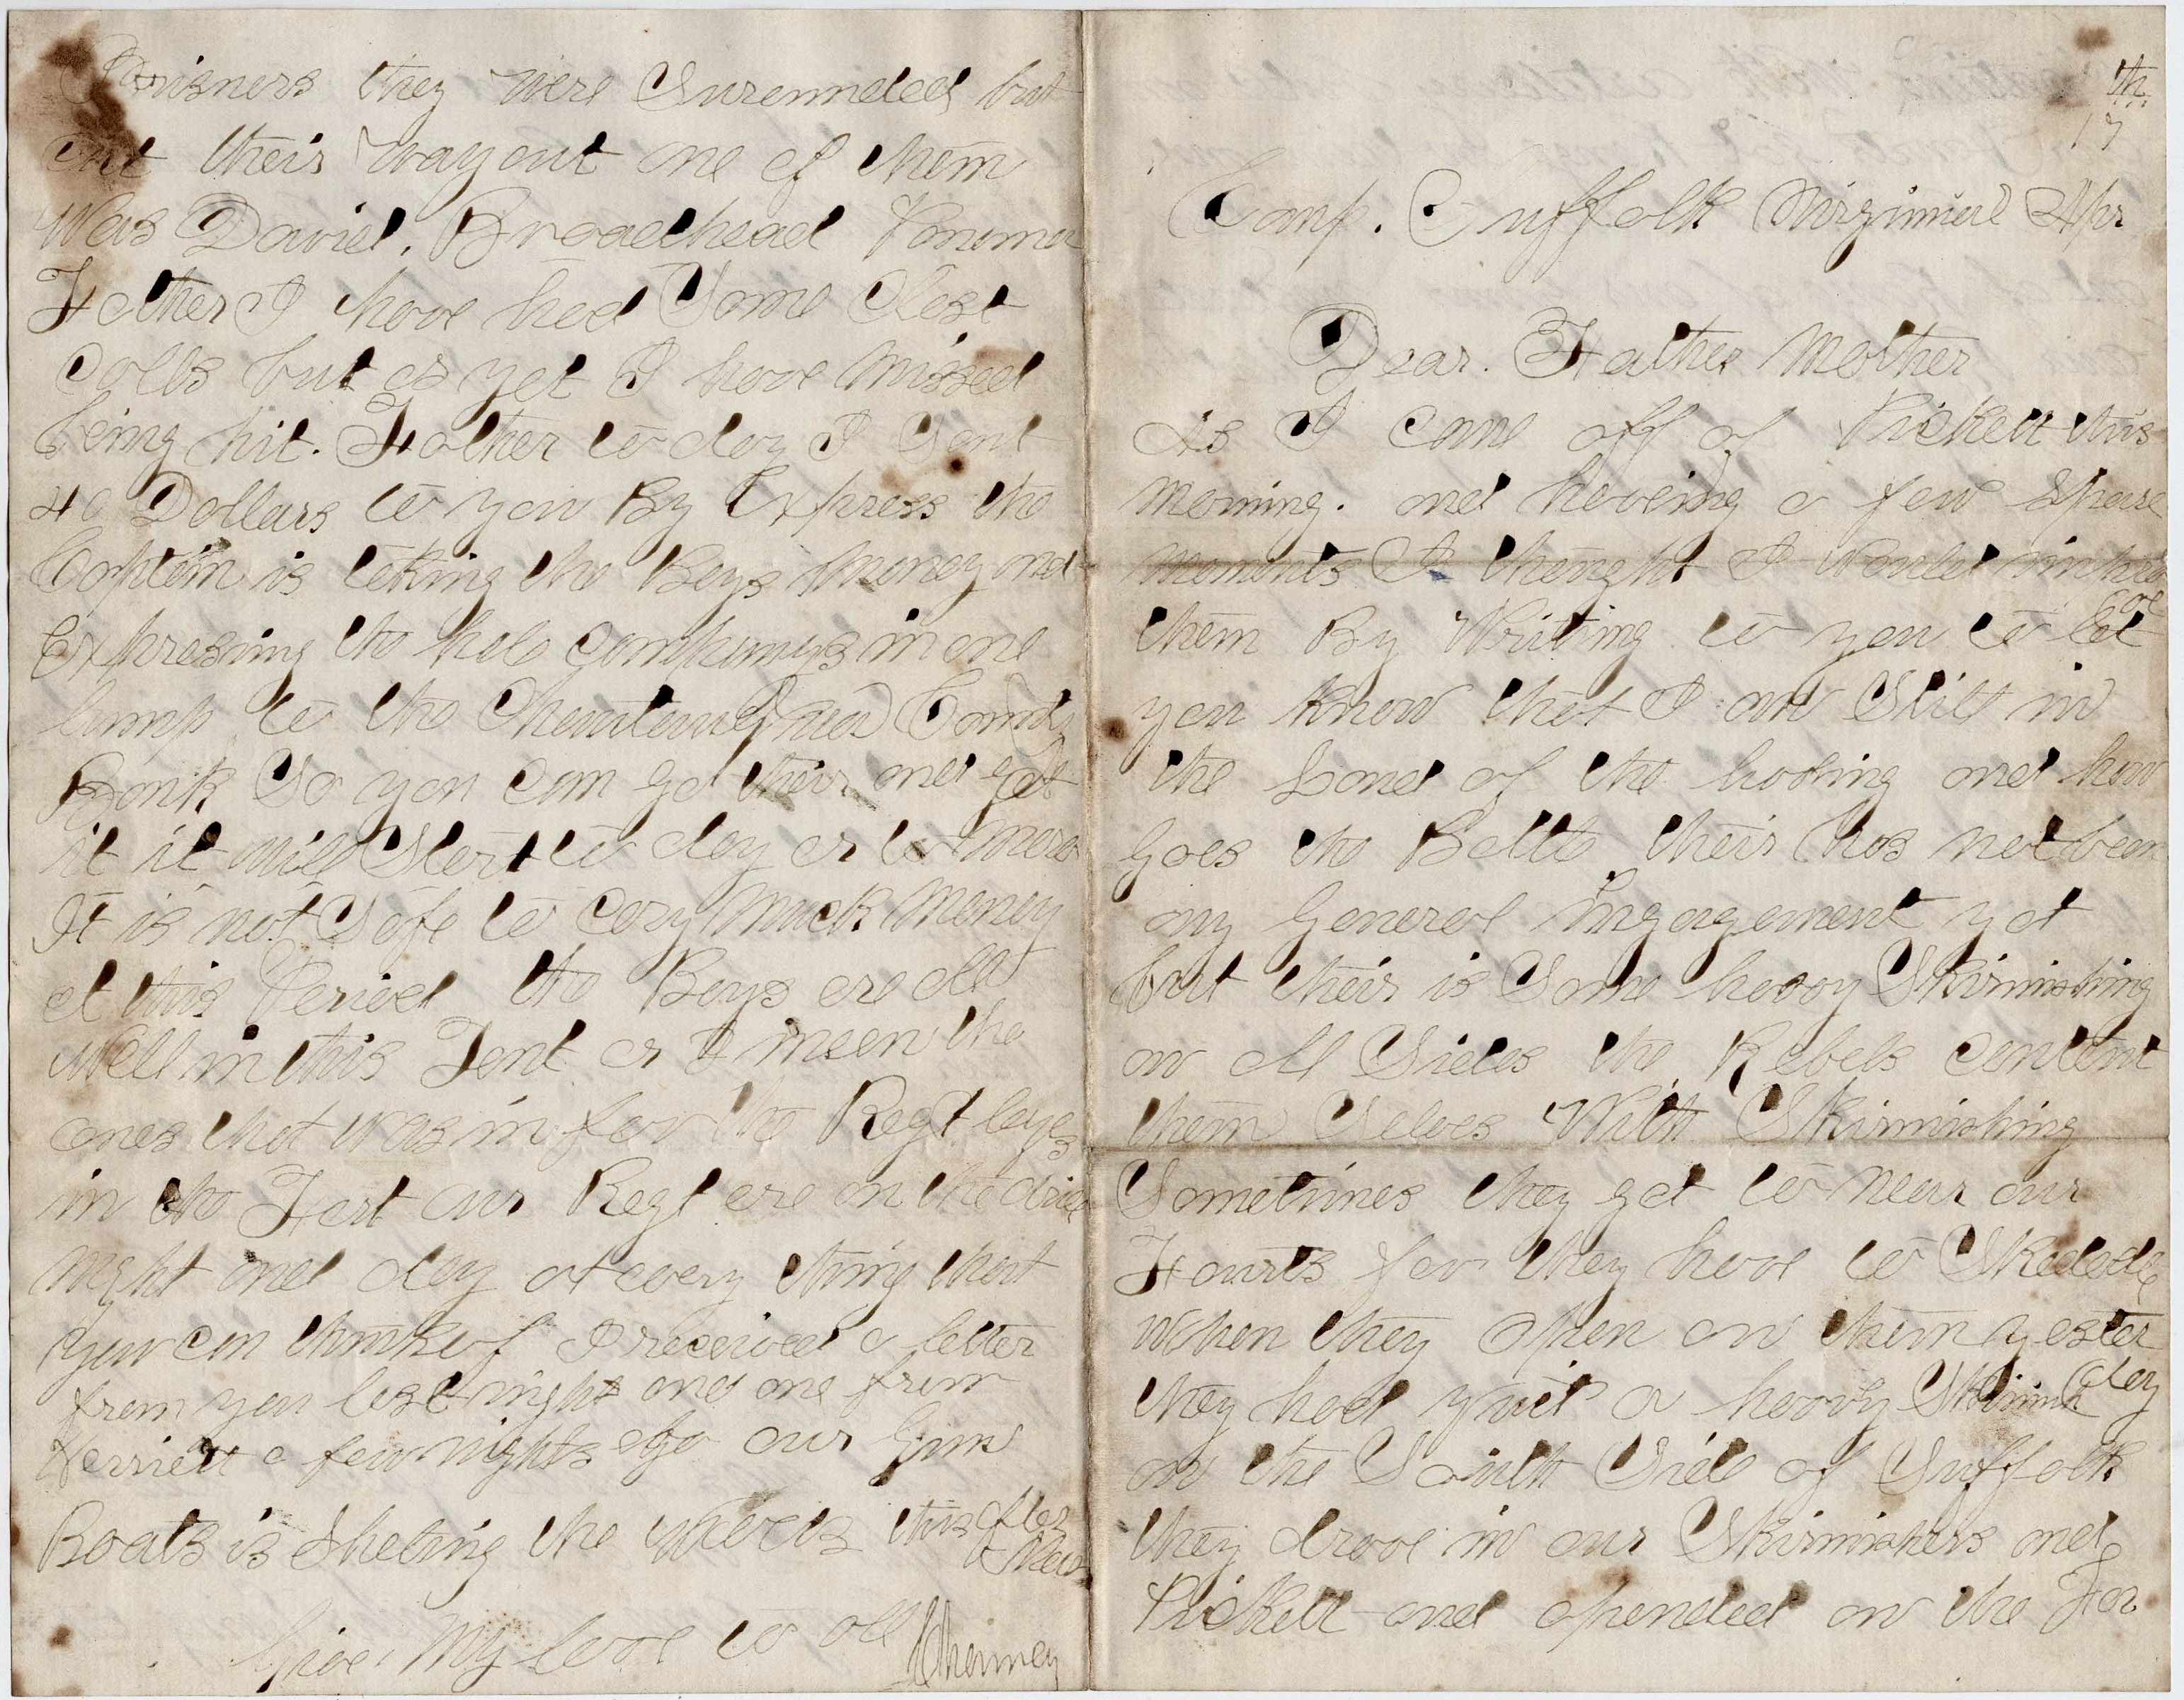 17th
Camp. Suffolk Virginiael Apr
Dear. Father Mother
As I came off of Pickett this
morning. and haveing a few spare
moments I thought I would improve
them By Writing to you to let
you know that I am Still in
the Land of the liveing and how
Goes the Battle their has not been
any General Ingagement yet
but their is Some heavy Skirmishing
on all Sides the Rebels content
them Selves With Skirmishing
Sometimes they get to near our
Fourts for they have to Skedadle
when they open on them yester
day
they had quit a heavy Skirmish
on the South Side of Suffolk
they drove in our Skirmishers and
Pickett and opended on the For
Prisners they were Surennded but
cut their way out one of them
Was David. Broadhead
Father I have had Some Clost
Calls but as yet I have missed
being hit. Father to day I Sent
40 Dollars to you By Express the
Captin is takeing the Boys money and
Expresing the hole Companys in one
lump to the Chautauqua County
Bank So you can go their and get
it it will Start to day or to morow
It is not Safe to cary much money
at this Period the Boys are all
well in this Tent or I meen the
ones that was in for the Regt layes
in the Fort our Regt are on the
night and day at every thing that
you can think of I received a letter
from you last night and one from
Harriett a few nights ago our Gun
Boats is Sheling the this after
Noon
Give My love to all